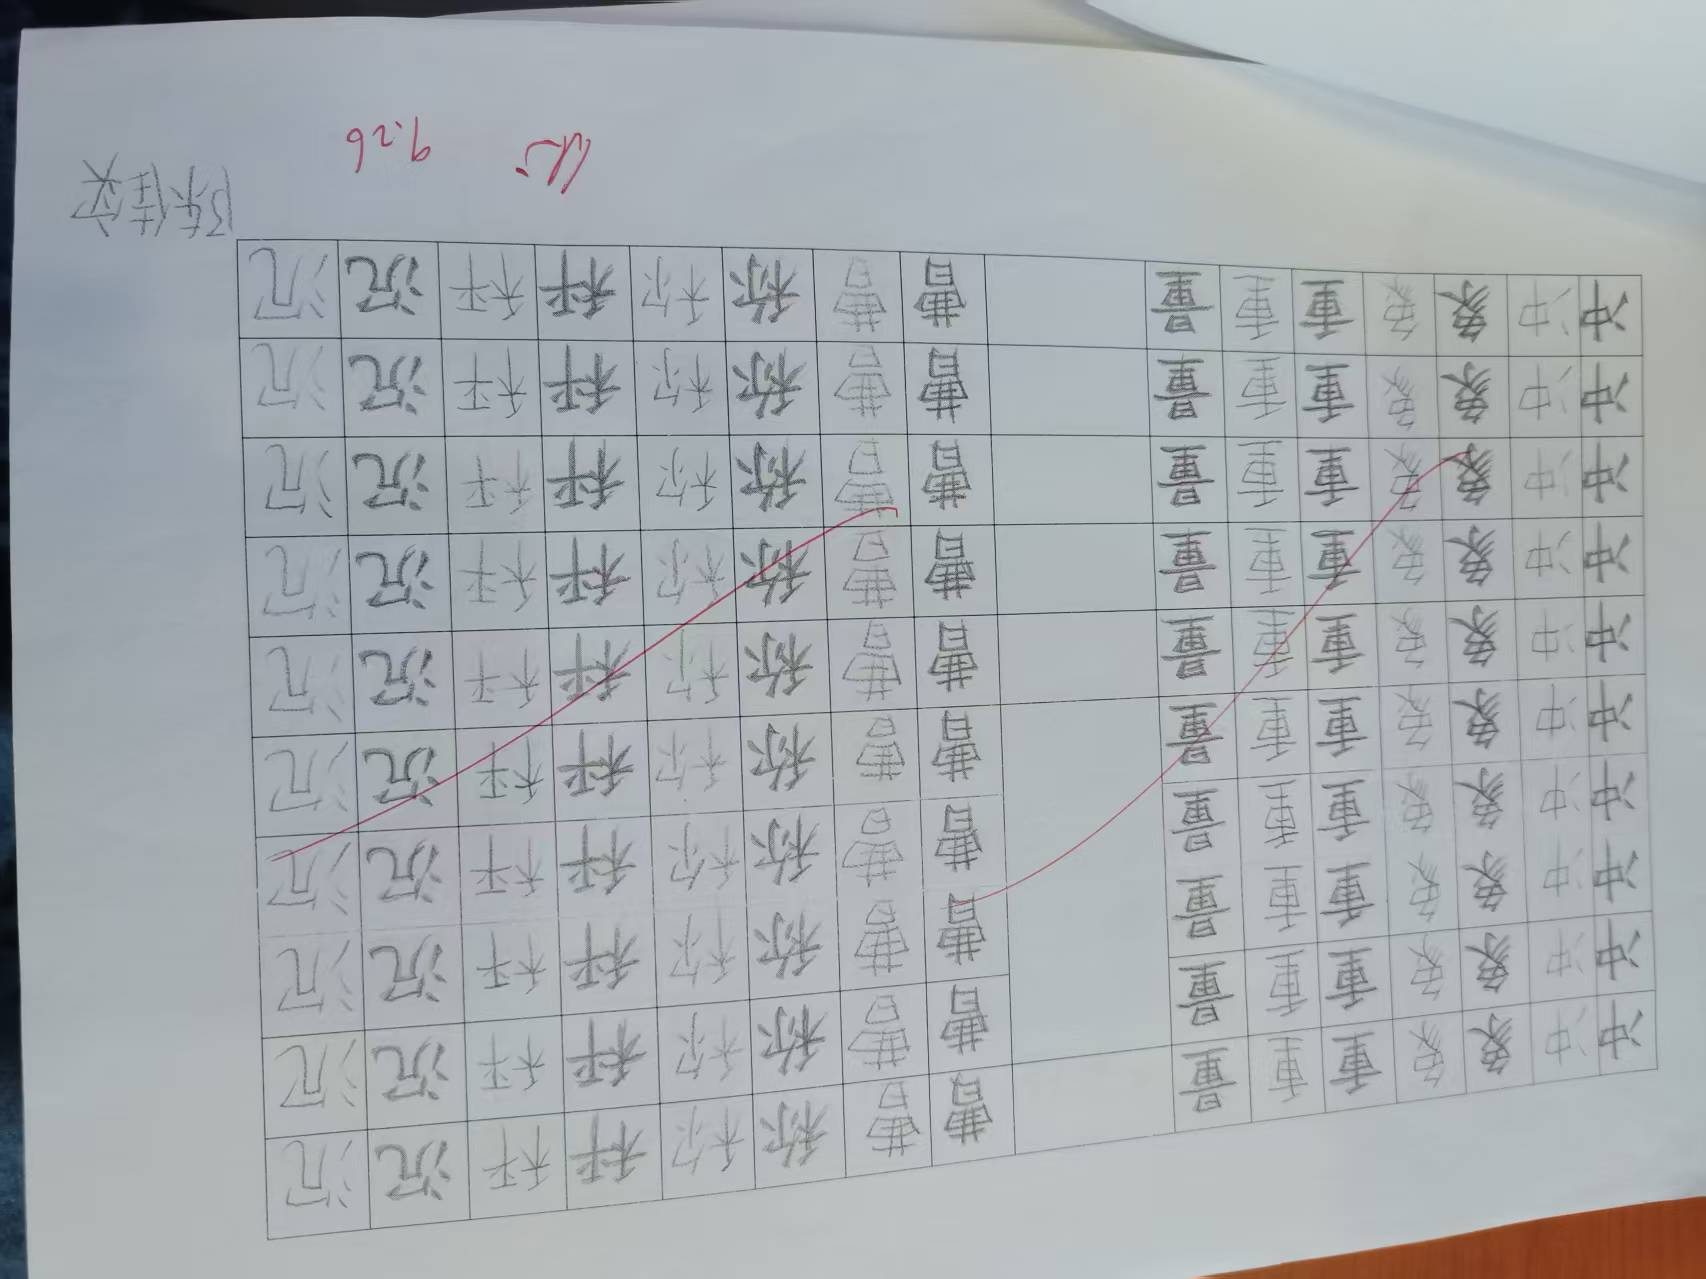 冲 冲 象 象 重 重 量 曹 曹 称 称 秤 秤 沉 沉
冲 冲 象 象 重 重 量 曹 曹 称 称 秤 秤 沉 沉
冲 冲 象 象 重 重 量 曹 曹 称 称 秤 秤 沉 沉
冲 冲 象 象 重 重 量 曹 曹 称 称 秤 秤 沉 沉
冲 冲 象 象 重 重 量 曹 曹 称 称 秤 秤 沉 沉
冲 冲 象 象 重 重 量 曹 曹 称 称 秤 秤 沉 沉
冲 冲 象 象 重 重 量 曹 曹 称 称 秤 秤 沉 沉
冲 冲 象 象 重 重 量 曹 曹 称 称 秤 秤 沉 沉
冲 冲 象 象 重 重 量 曹 曹 称 称 秤 秤 沉 沉
冲 冲 象 象 重 重 量 曹 曹 称 称 秤 秤 沉 沉
陈佳实
9.26